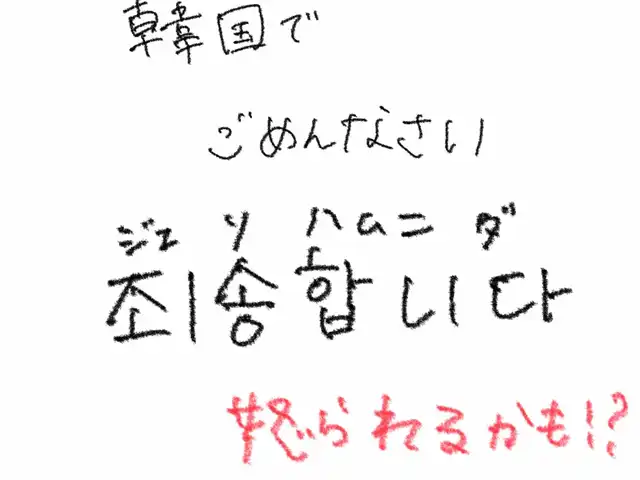 韓国で
ごめんなさい
ジェ ソ ハムニ ダ
죄송합니다
怒られるかも!?